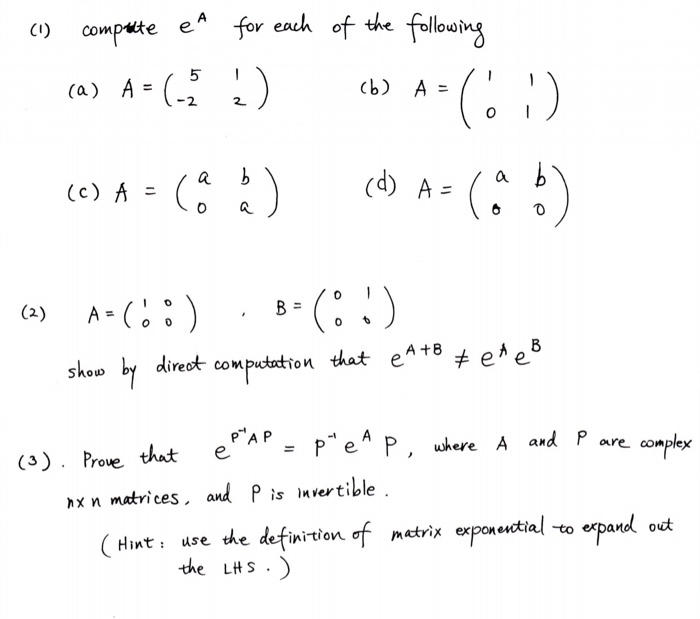 (1) compute e^A for each of the following
(a) A = ( 5 1 ; -2 2 ) (b) A = ( 1 1 ; 0 1 )
(c) A = ( a b ; 0 a ) (d) A = ( a b ; 0 0 )
(2) A = ( 1 0 ; 0 0 ) , B = ( 0 1 ; 0 0 )
show by direct computation that e^{A+B} ≠ e^A e^B
(3). Prove that e^{P^{-1}AP} = P^{-1} e^A P, where A and P are complex
n×n matrices, and P is invertible.
(Hint: use the definition of matrix exponential to expand out
the LHS.)